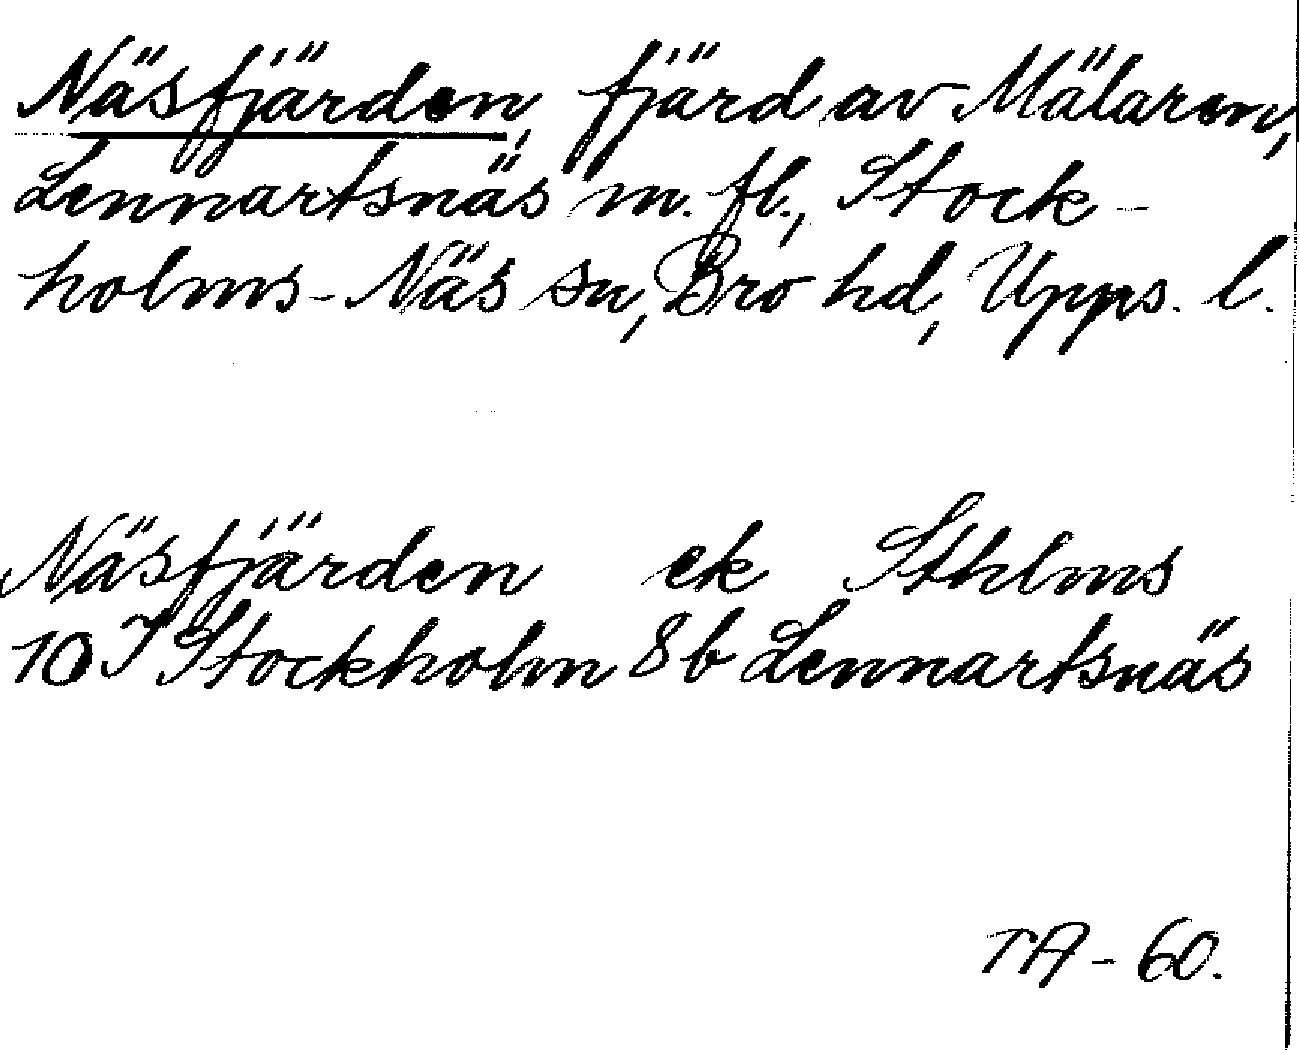 Näsfjärden, fjärd av Mälaren,
Lennartsnäs m. fl., Stock-
holms-Näs sn, Bro hd, Upps. l.
Näsfjärden ek Sthlms
10 I Stockholm 8b Lennartsnäs
TA - 60.